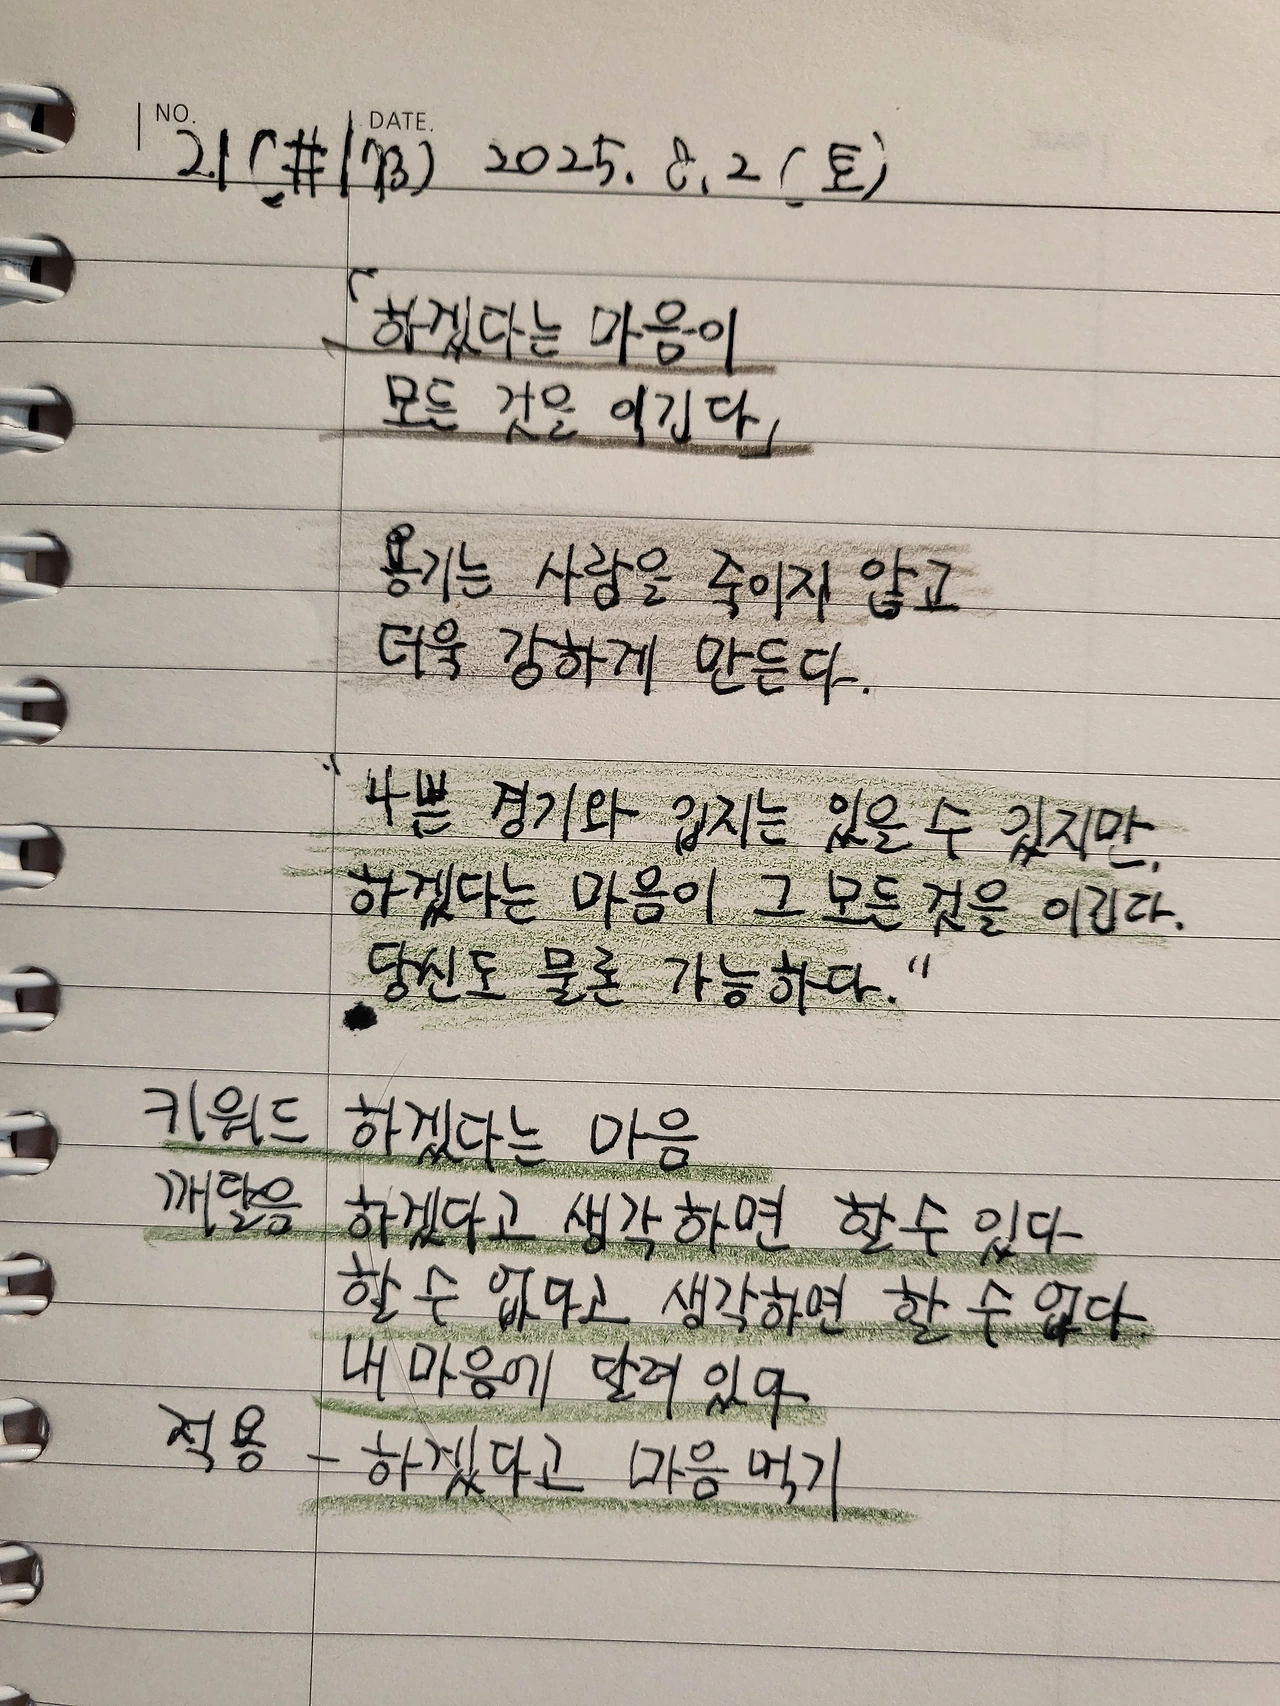 NO. DATE.
21 (#173) 2025. 8. 2 (토)
「하겠다는 마음이
모든 것을 이긴다」
용기는 사람을 죽이지 않고
더욱 강하게 만든다.
"나쁜 경기와 입지는 있을 수 있지만,
하겠다는 마음이 그 모든 것을 이긴다.
당신도 물론 가능하다."
키워드 하겠다는 마음
깨달음 하겠다고 생각하면 할 수 있다
할 수 없다고 생각하면 할 수 없다.
내 마음에 달려 있다
적용 - 하겠다고 마음먹기